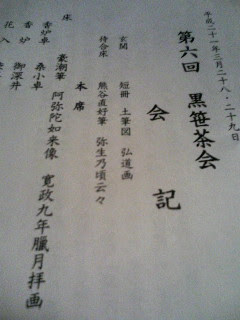 平成二十一年三月二十八・二十九日
第六回 黒笹茶会
会記
玄関 短冊 土筆図 弘道画
待合床 熊谷直好筆 弥生乃頃云々
本席
床 豪潮筆 阿弥陀如来像 寛政九年臘月拝画
香炉卓 桑小卓
香炉 御深井
花入